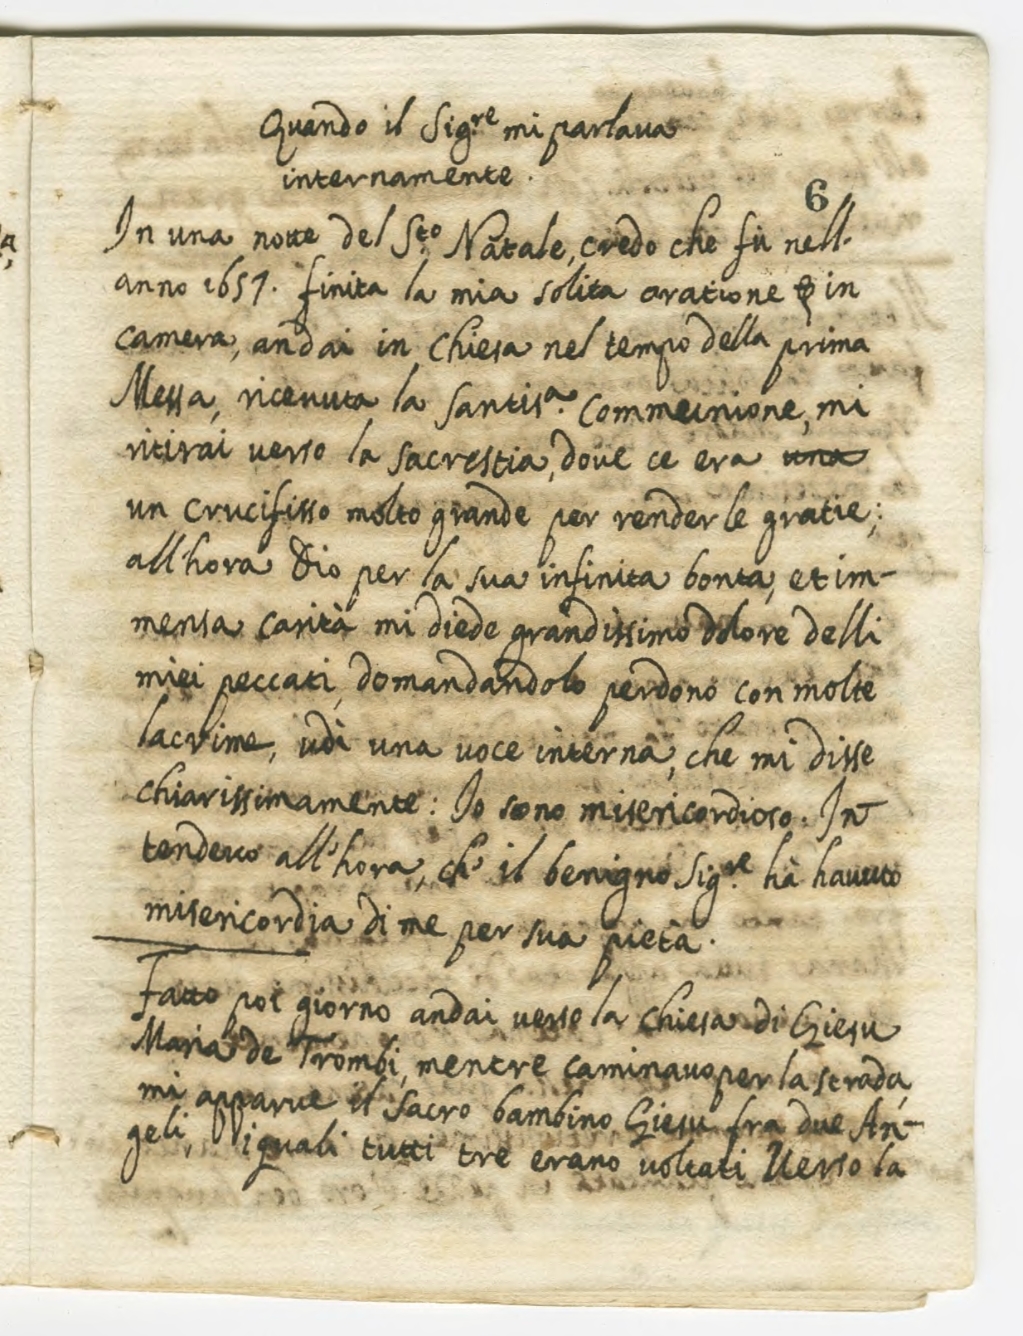 Quando il Sig.re mi parlaua
internamente.
6
In una notte del S.to Natale, credo che fù nell'
anno 1657. finita la mia solita oratione in
camera, andai in Chiesa nel tempo della prima
Messa, riceuuta la Santis.a Communione, mi
ritirai uerso la Sacrestia, doue ce era una
un Crucifisso molto grande per renderle gratie;
all'hora Dio per la sua infinita bonta, et im-
mensa carità mi diede grandissimo dolore delli
miei peccati, domandandolo perdono con molte
lacrime, udi una uoce interna, che mi disse
chiarissimamente: Io sono misericordioso. In-
tendeuo all'hora, ch' il benigno Sig.re hà hauuto
misericordia di me per sua pietà.
Fatto poi giorno andai uerso la Chiesa di Giesu
Maria de Trombi, mentre caminauo per la strada,
mi apparue il Sacro bambino Giesu fra due An-
geli, i quali tutti tre erano uoltati Uerso la